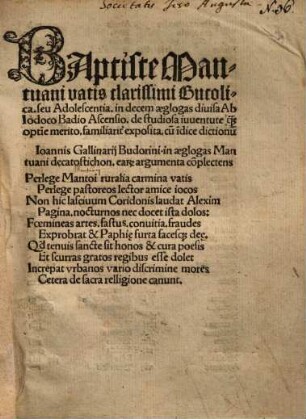 Societatis Jesu Augustæ
N.36
BAptiste Man-
tuani vatis clarissimi Bucoli-
ca, seu Adolescentia, in decem æglogas diuisa Ab
Iodoco Badio Ascensio, de studiosa iuuentute qͣꝫ
optie merito, familiarit̓ exposita, cū īdice dictionū
Ioannis Gallinarij Budorini-in æglogas Man
tuani decatostichon, earꝝ argumenta cōplectens
Perlege Mantoi ruralia carmina vatis
Perlege pastoreos lector amice iocos
Non hic lasciuum Coridonis laudat Alexim
Pagina, nocturnos nec docet ista dolos:
Fœmineas artes, fastus, conuitia, fraudes
Exprobrat & Paphię furta facesqꝫ deę.
Qd̓ tenuis sancte sit honos & cura poesis
Et scurras gratos regibus esse dolet
Increpat vrbanos vario discrimine mores
Cetera de sacra relligione canunt.